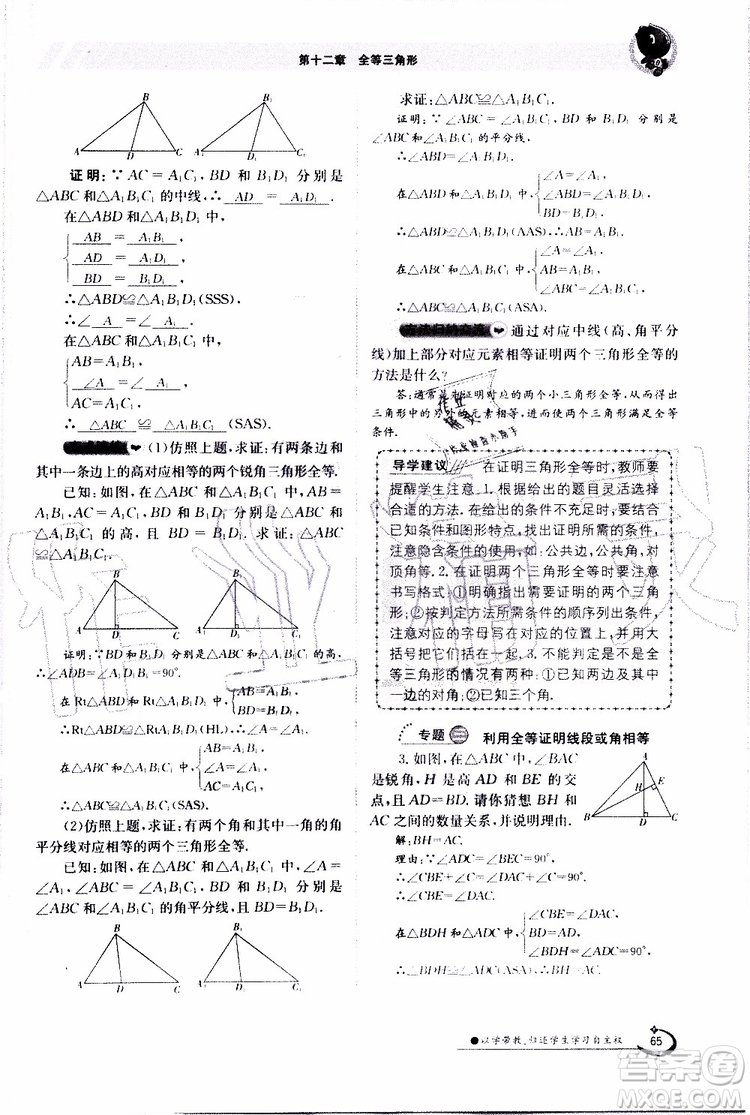 第十二章 全等三角形
B B₁
A D C A₁ D₁ C₁
证明:∵AC=A₁C₁,BD 和 B₁D₁ 分别是
△ABC和△A₁B₁C₁的中线,∴ AD = A₁D₁ .
在△ABD和△A₁B₁D₁中,
AB = A₁B₁
AD = A₁D₁
BD = B₁D₁
∴△ABD≌△A₁B₁D₁(SSS)
∴∠ A = ∠ A₁ .
在△ABC和△A₁B₁C₁中,
AB=A₁B₁,
∠A = ∠A₁ ,
AC=A₁C₁,
∴ △ABC ≌ △A₁B₁C₁ (SAS).
(1)仿照上题,求证:有两条边和
其中一条边上的高对应相等的两个锐角三角形全等.
已知:如图,在△ABC和△A₁B₁C₁中,AB=
A₁B₁,BC=B₁C₁,BD和B₁D₁分别是△ABC和△A₁B₁
C₁的高,且BD=B₁D₁.求证:△ABC≌△A₁B₁C₁.
B B₁
A D C A₁ D₁ C₁
证明:∵BD和B₁D₁分别是△ABC和△A₁B₁C₁的高,
∴∠ADB=∠A₁D₁B₁=90°.
在Rt△ABD和Rt△A₁B₁D₁中,
AB=A₁B₁,
BD=B₁D₁,
∴Rt△ABD≌Rt△A₁B₁D₁(HL),∴∠A=∠A₁.
在△ABC和△A₁B₁C₁中,
AB=A₁B₁,
∠A=∠A₁,
AC=A₁C₁,
∴△ABC≌△A₁B₁C₁(SAS).
(2)仿照上题,求证:有两个角和其中一个角的角
平分线对应相等的两个三角形全等.
已知:如图,在△ABC和△A₁B₁C₁中,∠A=
∠A₁,∠B=∠B₁,BD=B₁D₁,BD和B₁D₁分别是
∠ABC和∠A₁B₁C₁的角平分线,
B B₁
A D C A₁ D₁ C₁
求证:△ABC≌△A₁B₁C₁.
证明:∵∠ABC=∠A₁B₁C₁,BD和B₁D₁分别是
∠ABC和∠A₁B₁C₁的平分线,
∴∠ABD=∠A₁B₁D₁.
在△ABD和△A₁B₁D₁中,
∠A=∠A₁,
∠ABD=∠A₁B₁D₁,
BD=B₁D₁,
∴△ABD≌△A₁B₁D₁(AAS),∴AB=A₁B₁.
在△ABC和△A₁B₁C₁中,
∠A=∠A₁,
AB=A₁B₁,
∠ABC=∠A₁B₁C₁,
∴△ABC≌△A₁B₁C₁(ASA).
方法归纳交流 通过对应中线(高、角平分
线)加上部分对应元素相等证明两个三角形全等的
方法是什么?
答:通常是先证明对应的两个小三角形全等,从而得出
三角形中的另外的元素相等,进而使两个三角形满足全等
条件.
导学建议 在证明三角形全等时,教师要
提醒学生注意.1.根据给出的题目灵活选择
合适的方法.在给出的条件不充足时,要根据
已知条件和图形特点,找出证明所需的条件,
注意隐含条件的使用,如:公共边,公共角,对
顶角等.2.在证明两个三角形全等时要注意
书写格式:①明确指出需要证明的两个三角
形;②按判定方法所需条件的顺序列出条件,
注意对应的字母写在对应的位置上,并用大
括号把它们括在一起.3.不能判定是不是全
等三角形的情况:①已知两边及其中一边所
对的对角;②已知三个角.
专题二 利用全等证明线段或角相等
3.如图,在△ABC中,∠BAC
是锐角,H是高AD和BE的交
点,且AD=BD.请你猜想BH和
AC之间的数量关系,并说明理由.
A H E B D C
解:BH=AC.
理由:∵∠ADC=∠BEC=90°,
∴∠CBE+∠C=∠DAC+∠C=90°,
∴∠CBE=∠DAC.
在△BDH和△ADC中,
∠CBE=∠DAC,
BD=AD,
∠BDH=∠ADC=90°,
∴△BDH≌△ADC(ASA),∴BH=AC.
●以学带教,归还学生学习自主权
65
作业精灵
答案圈
MXQE.COM